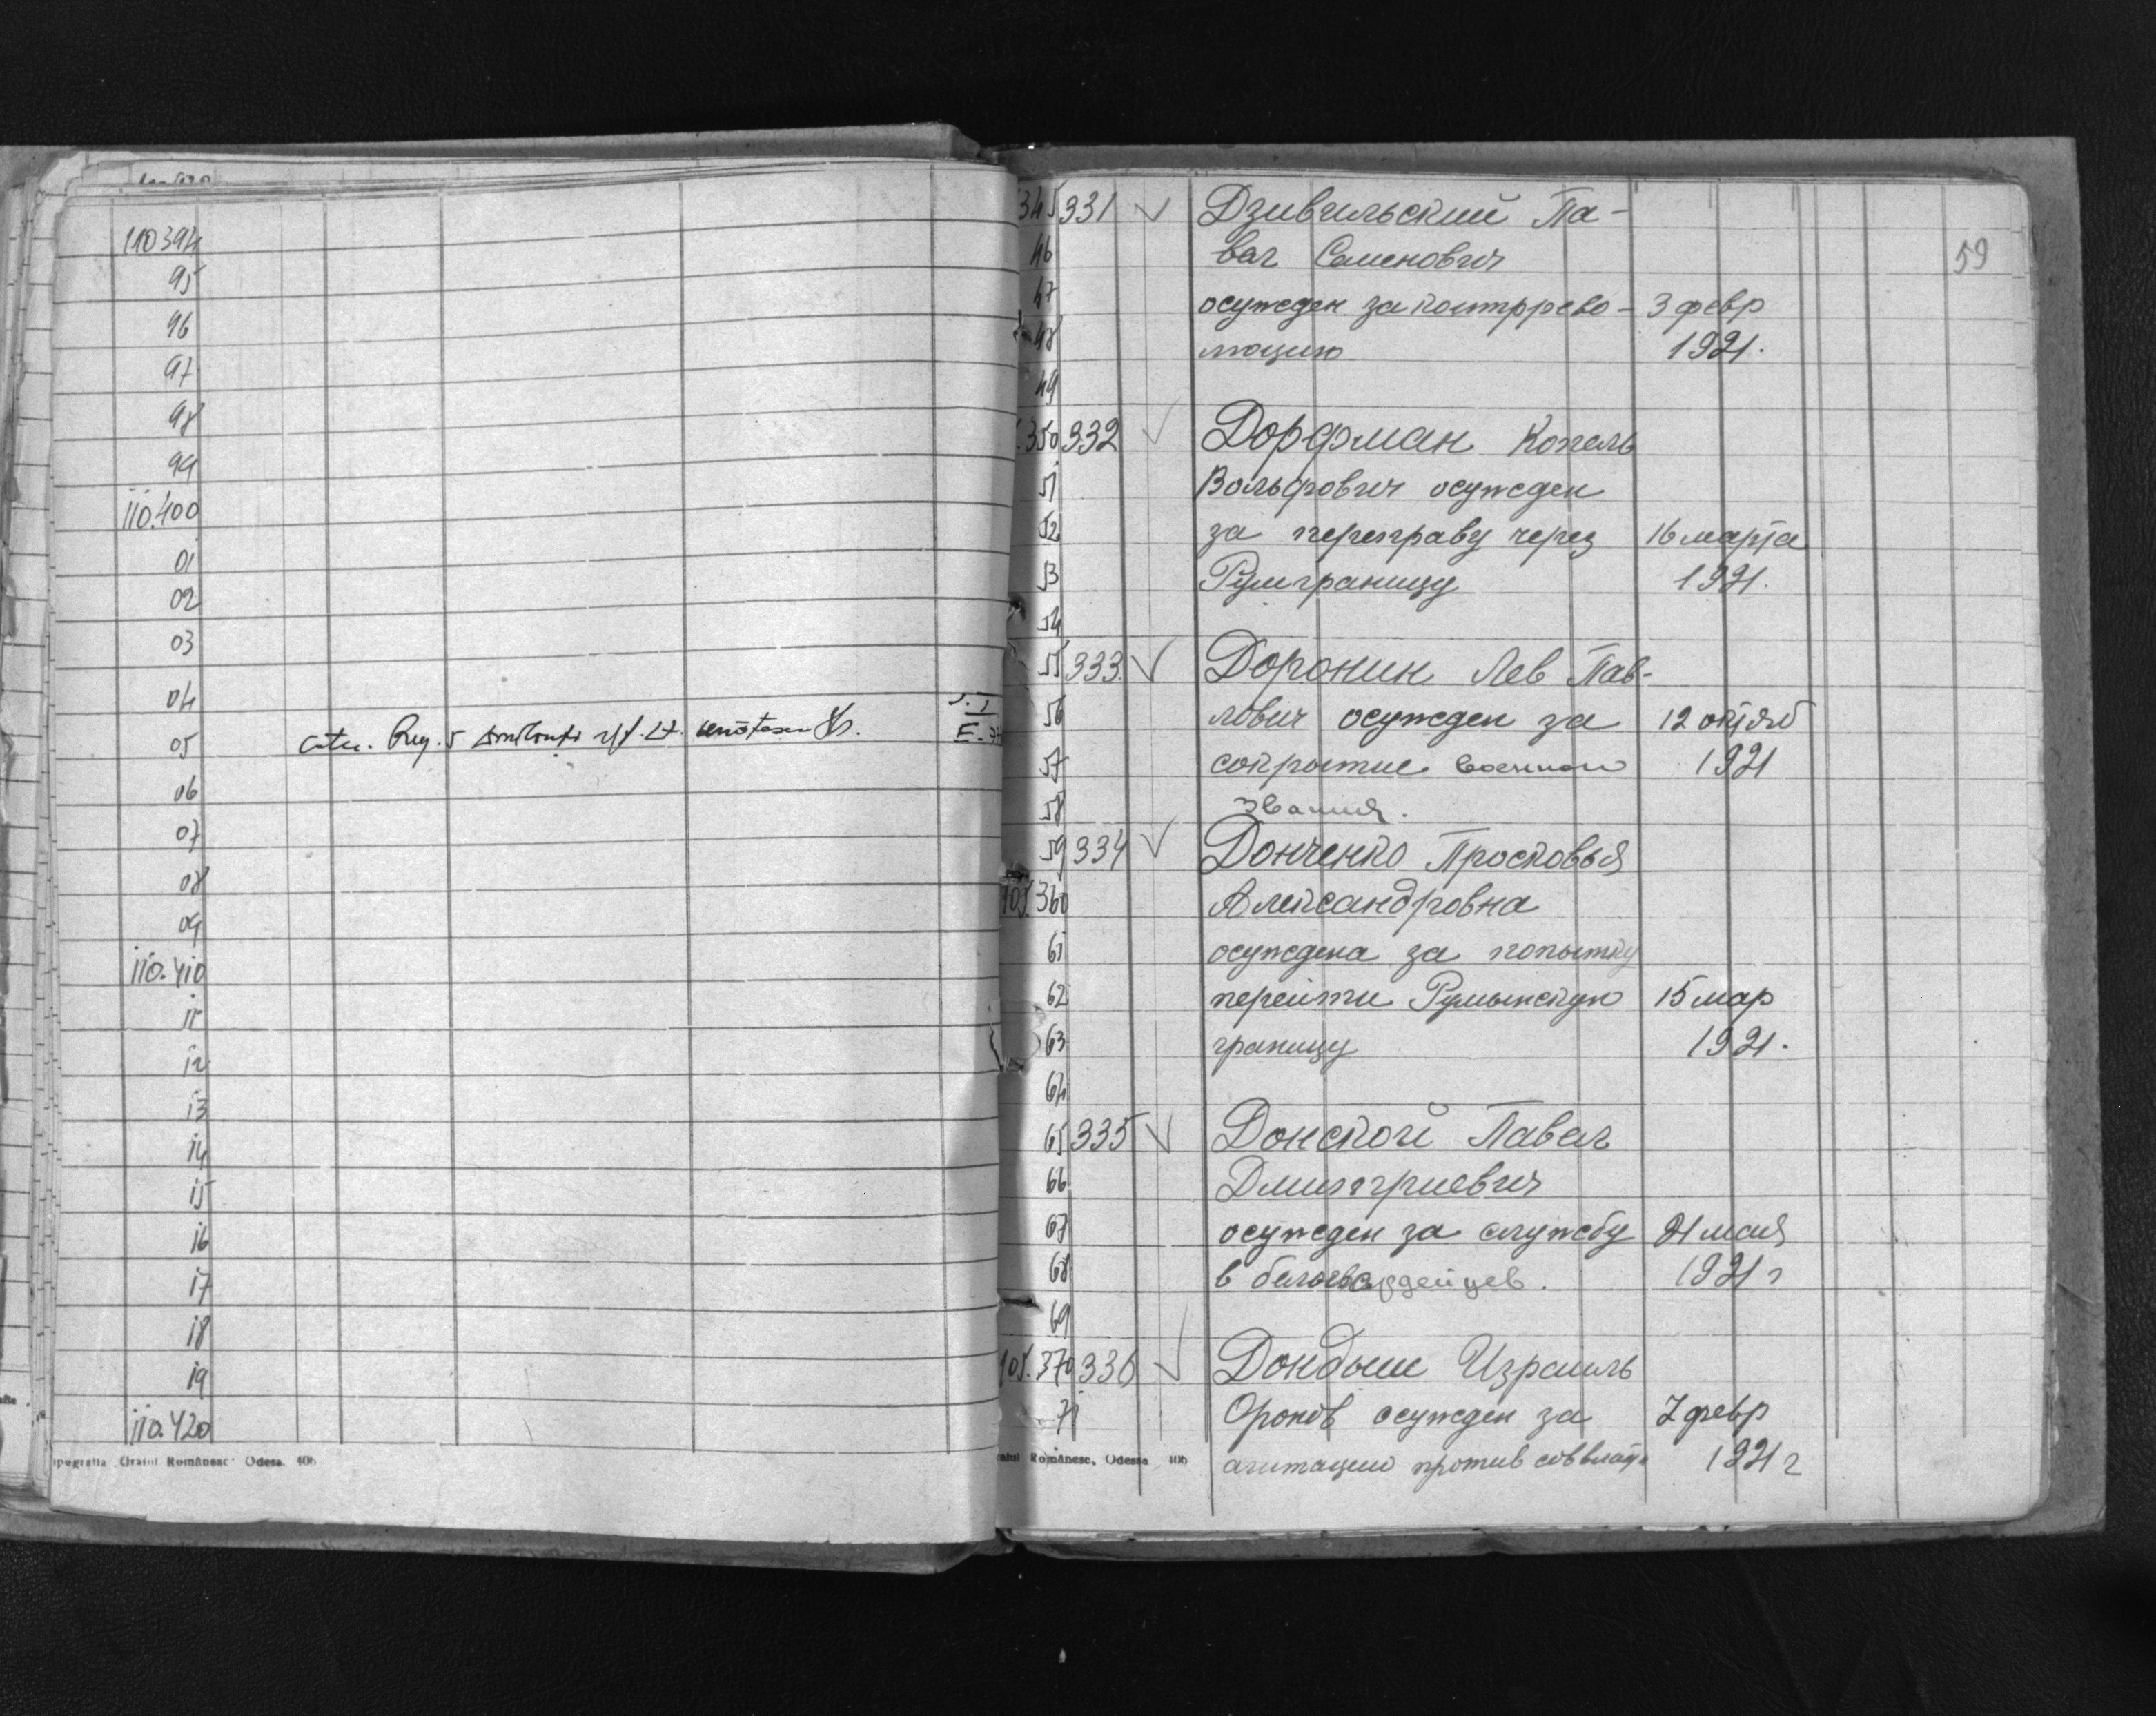 110394
95
96
97
98
99
110.400
01
02
03
04
05
06
07
08
09
110.410
11
12
13
14
15
16
17
18
19
110.420
59
345 331 √ Дзивильский Па-
46 вел Семенович
47 осужден за контррево- 3 февр
48 люцию 1921.
49
350 332 √ Дорфман Копель
51 Вольфович осужден
52 за переправу через 16 марта
53 Румграницу 1921.
54
55 333. √ Доронин Лев Пав-
56 лович осужден за 12 октяб
57 сокрытие военном 1921
58 звания.
59 334 √ Донченко Просковья
105.360 Александровна
61 осуждена за попытку
62 перейти Румынскую 15 мар
63 границу 1921.
64
65 335 √ Донской Павел
66 Дмитриевич
67 осужден за службу 21 мая
68 в белогвардейцев. 1921 г
69
105.370 336 √ Дондыш Израиль
71 Оронов осужден за 7 февр
агитацию против соввласти 1921 г
Odesa. 406
Românesc, Odessa 406